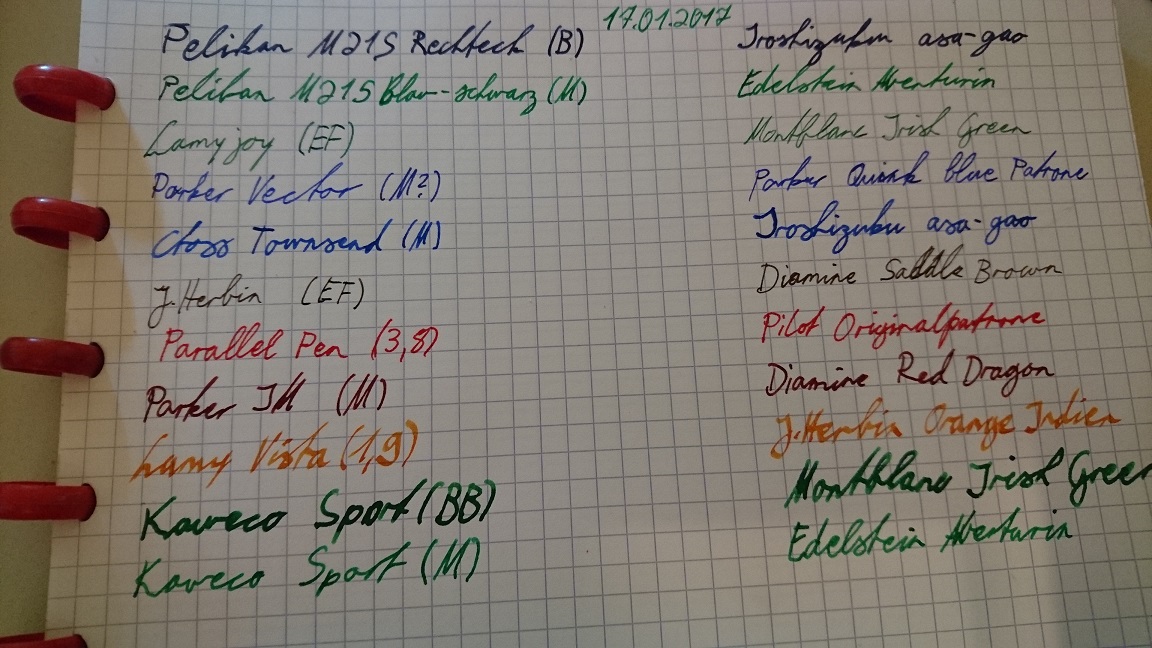 17.01.2017
Pelikan M215 Rechteck (B) Iroshizuku asa-gao
Pelikan M215 Blau-schwarz (M) Edelstein Aventurin
Lamy joy (EF) Montblanc Irish Green
Parker Vector (M?) Parker Quink blue Patrone
Cross Townsend (M) Iroshizuku asa-gao
J.Herbin (EF) Diamine Saddle Brown
Parallel Pen (3,8) Pilot Originalpatrone
Parker IM (M) Diamine Red Dragon
Lamy Vista (1,9) J.Herbin Orange Indien
Kaweco Sport (BB) Montblanc Irish Green
Kaweco Sport (M) Edelstein Aventurin